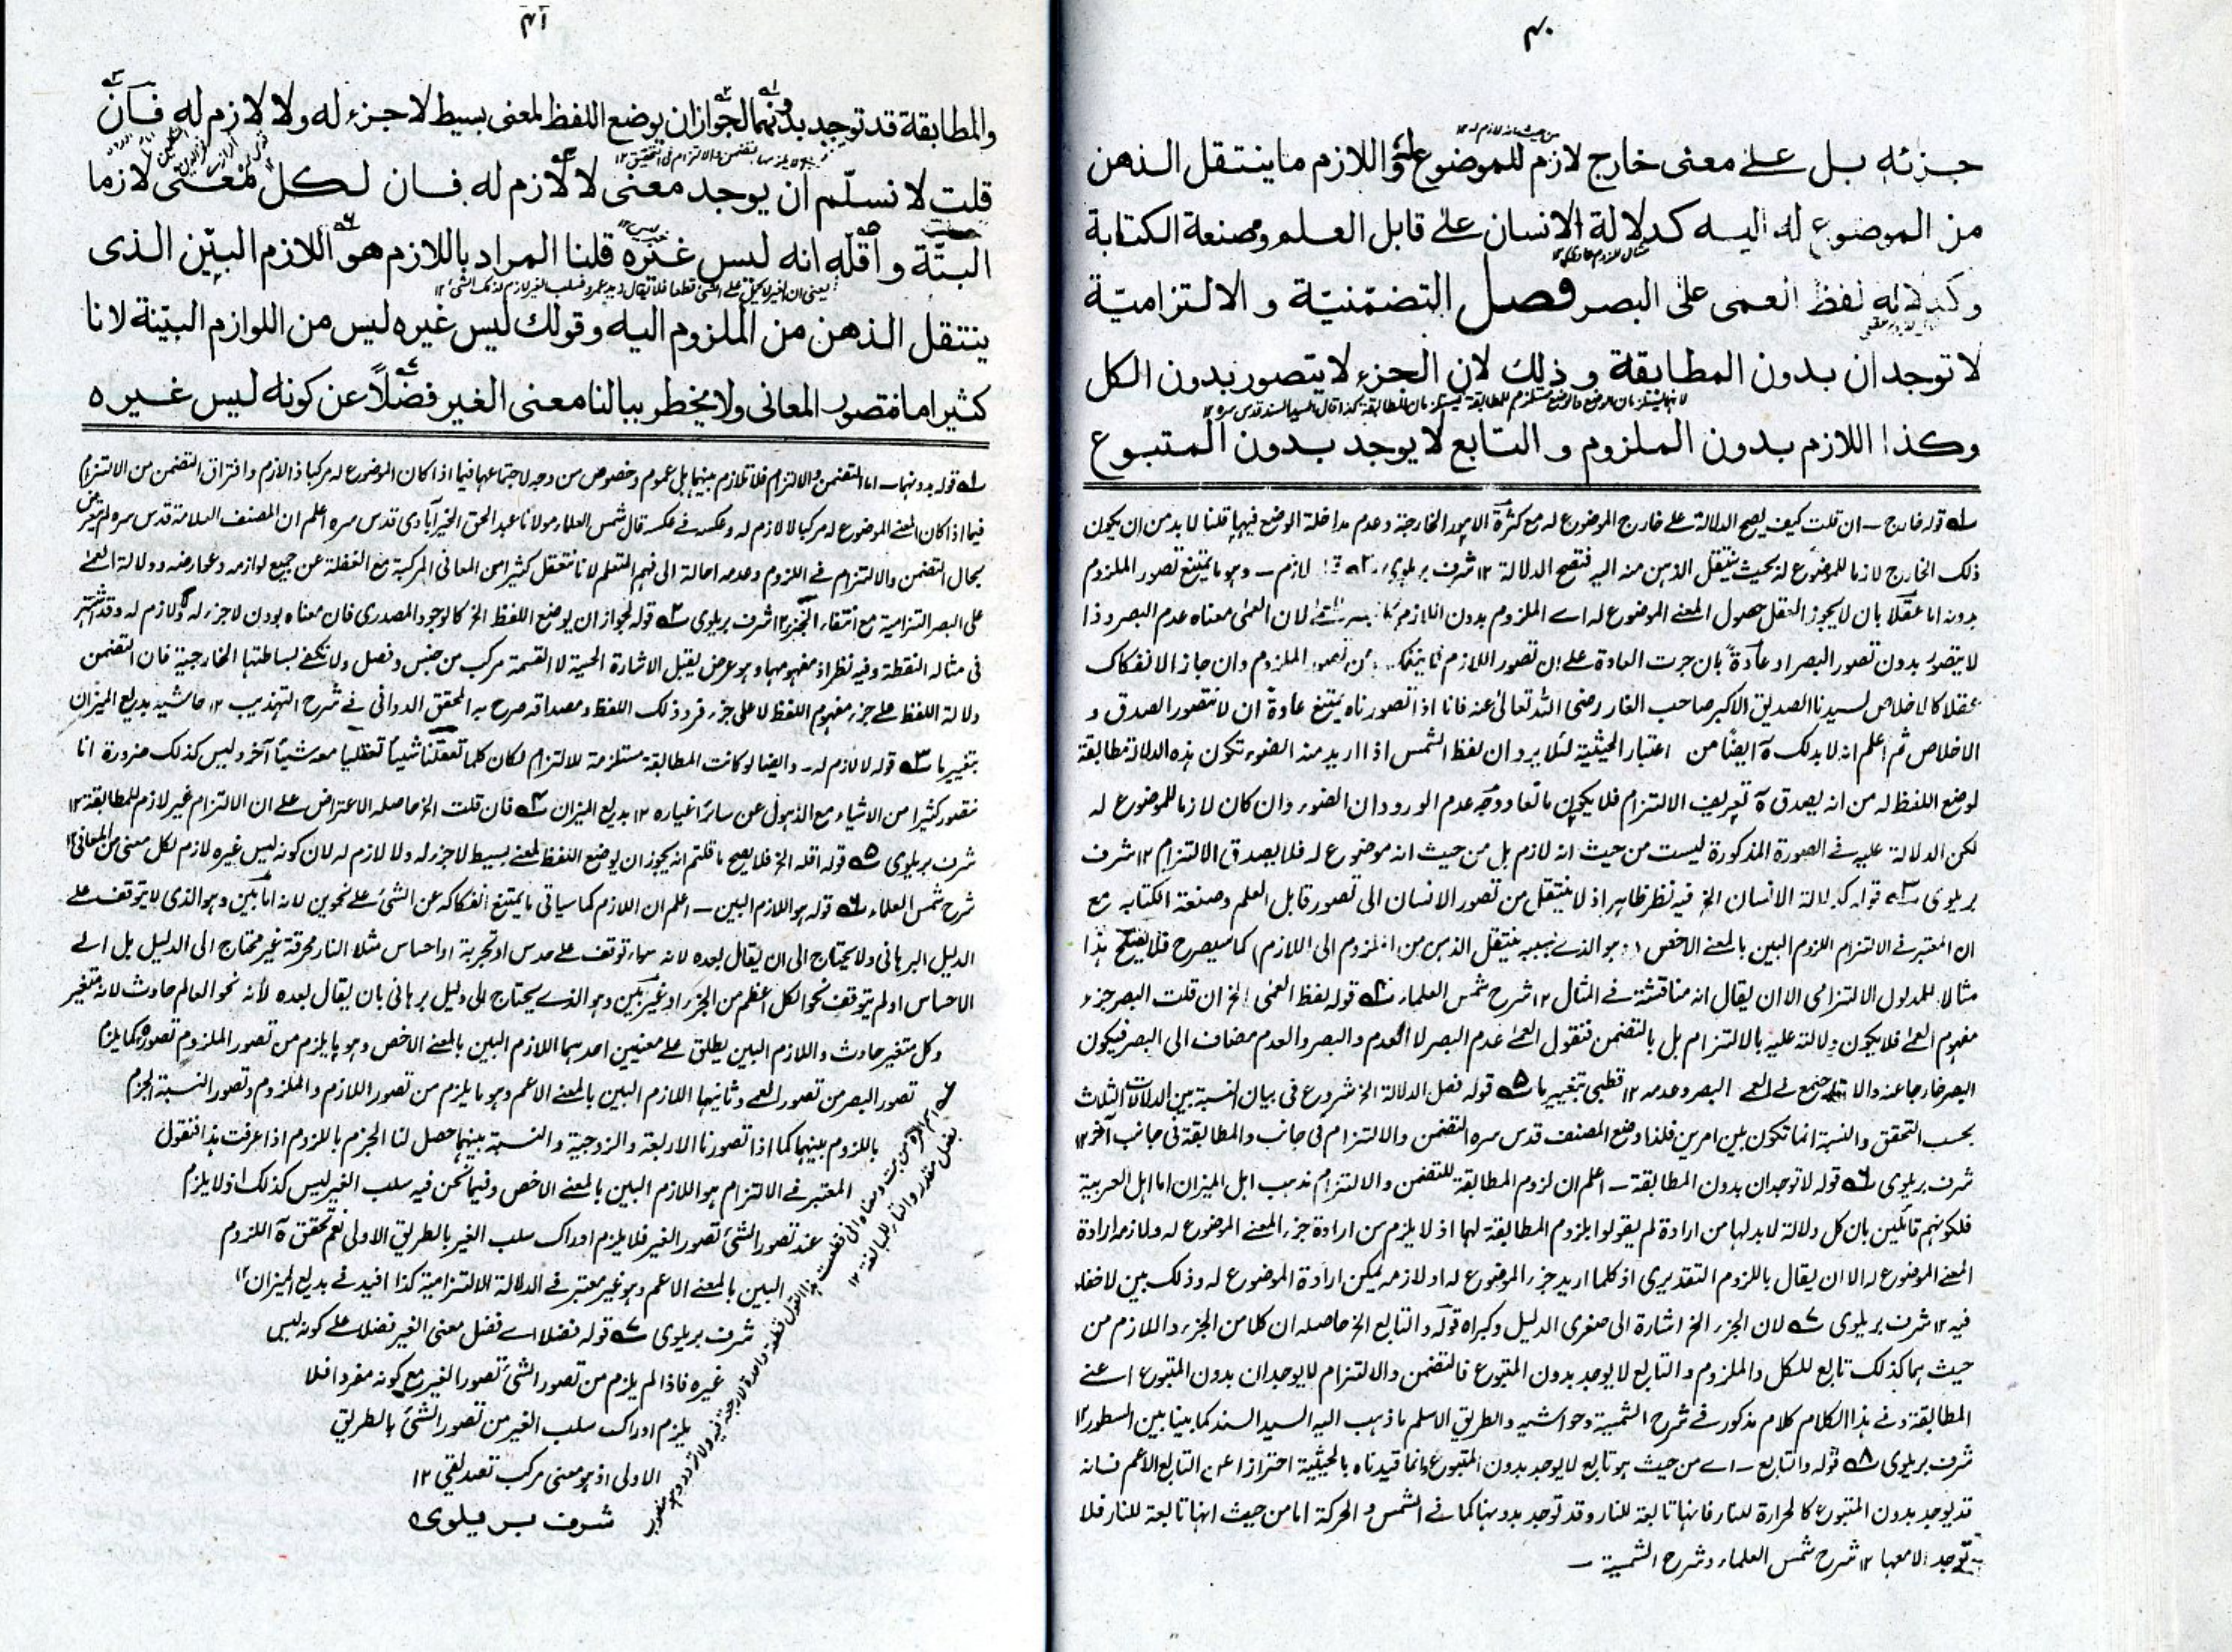 ۴۰
جزئه بل على معنى خارج لازم للموضوع له واللازم ما ينتقل الذهن
من الموضوع له اليه كدلالة الانسان على قابل العلم وصنعة الكتابة
وكدلالة لفظ العمى على البصر فصل التضمنيّة و الالتزاميّة
لا توجدان بدون المطابقة و ذلك لان الجزء لا يتصور بدون الكل
وكذا اللازم بدون الملزوم و التابع لا يوجد بدون المتبوع
قوله خارج ــ ان قلت كيف يصح الدلالة على خارج الموضوع له مع كثرة الامور الخارجة وعدم مداخلة الوضع فيها قلنا لا بد من ان يكون
ذلك الخارج لازما للموضوع له بحيث ينتقل الذهن منه اليه فتصح الدلالة ١٢ شرف بريلوي لازم ــ وهو ما يمتنع تصور الملزوم
بدونه اما عقلا بان لا يجوز العقل حصول المعنى الموضوع له اے الملزوم بدون اللازم لان العمى معناه عدم البصر وذا
لا يتصور بدون تصور البصر او عادة بان جرت العادة على ان تصور اللازم الملزوم وان جاز الانفكاك
عقلا كالاخلاص لسيدنا الصديق الاكبر صاحب الغار رضى الله تعالى عنه فانا اذا تصورناه يمتنع عادة ان لا نتصور الصدق و
الاخلاص ثم اعلم انه لا بد لك ايضا من اعتبار الحيثية لئلا يرد ان لفظ الشمس اذا اريد منه الضوء تكون هذه الدلالة مطابقة
لوضع اللفظ له من انه يصدق تعريف الالتزام فلا يكون مانعا ووجه عدم الورود ان الضوء وان كان لازما للموضوع له
لكن الدلالة عليه فى الصورة المذكورة ليست من حيث انه لازم بل من حيث انه موضوع له فلا يصدق الالتزام ١٢ شرف
بريلوى قوله كدلالة الانسان الخ فيه نظر ظاهر اذ لا ينتقل من تصور الانسان الى تصور قابل العلم وصنعة الكتابه مع
ان المعتبر فى الالتزام اللزوم البين بالمعنى الاخص وهو الذى بسببه ينتقل الذهن من الملزوم الى اللازم كما سيصرح فلا يصلح هذا
مثالا للمدلول الالتزامى الا ان يقال انه مناقشة فى المثال ١٢ شرح شمس العلماء قوله لفظ العمى الخ ان قلت البصر جزء
مفهوم العمى فلا يكون دلالته عليه بالالتزام بل بالتضمن فنقول العمى عدم البصر لا العدم والبصر والعدم مضاف الى البصر فيكون
البصر خارجا عنه والا لاجتمع فى العمى البصر وعدمه ١٢ قطبى بتغيير ما ۵ قوله فصل الدلالة الخ شروع فى بيان النسبة بين الدلالات الثلث
بحسب التحقق والنسبة انما تكون بين امرين فلذا وضع المصنف قدس سره التضمن والالتزام فى جانب والمطابقة فى جانب آخر ١٢
شرف بريلوى ۶ قوله لا توجدان بدون المطابقة ــ اعلم ان لزوم المطابقة للتضمن والالتزام مذهب اهل الميزان اما اهل العربية
فلكونهم قائلين بان كل دلالة لا بد لها من ارادة لم يقولوا بلزوم المطابقة لهما اذ لا يلزم من ارادة جزء المعنى الموضوع له ولازمه ارادة
المعنى الموضوع له الا ان يقال باللزوم التقديرى اذ كلما اريد جزء الموضوع له او لازمه يمكن ارادة الموضوع له وذلك بين لا خفاء
فيه ١٢ شرف بريلوى ۷ لان الجزء الخ اشارة الى صغرى الدليل وكبراه قوله والتابع الخ حاصله ان كلا من الجزء واللازم من
حيث هما كذلك تابع للكل والملزوم والتابع لا يوجد بدون المتبوع فالتضمن والالتزام لا يوجدان بدون المتبوع اعنى
المطابقة وفى هذا الكلام كلام مذكور فى شرح الشمسية وحواشيه والطريق الاسلم ما ذهب اليه السيد السند كما بينا بين السطور ١٢
شرف بريلوى ۸ قوله والتابع ــ اے من حيث هو تابع لا يوجد بدون المتبوع وانما قيدناه بالحيثية احترازا عن التابع الاعم فانه
قد يوجد بدون المتبوع كالحرارة للنار فانها تابعة للنار وقد توجد بدونها كما فى الشمس والحركة اما من حيث انها تابعة للنار فلا
توجد الا معها ١٢ شرح شمس العلماء وشرح الشمسية ــ
۴۱
والمطابقة قد توجد بدونهما لجواز ان يوضع اللفظ لمعنى بسيط لا جزء له ولا لازم له فان
قلت لا نسلّم ان يوجد معنى لا لازم له فان لكل معنى لازما
البتّة و اقلّه انه ليس غيره قلنا المراد باللازم هو اللازم البيّن الذى
ينتقل الذهن من الملزوم اليه وقولك ليس غيره ليس من اللوازم البيّنة لانا
كثيرا ما نتصور المعانى ولا يخطر ببالنا معنى الغير فضلاً عن كونه ليس غيره
۱ قوله بدونهما ــ اما التضمن والالتزام فلا تلازم بينهما بل عموم وخصوص من وجه لاجتماعهما فيما اذا كان الموضوع له مركبا ذا لازم وافتراق التضمن من الالتزام
فيما اذا كان المعنى الموضوع له مركبا لا لازم له وعكسه فى عكسه قال شمس العلماء مولانا عبد الحق الخيرآبادى قدس سره اعلم ان المصنف العلامة قدس سره لم يتعرض
بحال التضمن والالتزام فى اللزوم وعدمه احالة الى فهم المتعلم لانا نتعقل كثيرا من المعانى المركبة مع الغفلة عن جميع لوازمه وعوارضه ودلالة العمى
على البصر التزامية مع انتفاء الجزء ١٢ شرف بريلوى ۲ قوله لجواز ان يوضع اللفظ الخ كالوجود المصدرى فان معناه بودن لا جزء له ولا لازم له وقد اشتهر
فى مثاله النقطة وفيه نظر اذ مفهومها وهو عرض يقبل الاشارة الحسية لا القسمة مركب من جنس وفصل ولا تكفى بساطتها الخارجية فان التضمن
دلالة اللفظ على جزء مفهوم اللفظ لا على جزء فرد ذلك اللفظ ومصداقه صرح به المحقق الدوانى فى شرح التهذيب ١٢ حاشيه بديع الميزان
بتغيير ما ۳ قوله لا لازم له ــ وايضا لو كانت المطابقة مستلزمة للالتزام لكان كلما تعقلنا شيئا تعقلنا معه شيئا آخر وليس كذلك ضرورة انا
نتصور كثيرا من الاشياء مع الذهول عن سائر اغياره ١٢ بديع الميزان ۴ فان قلت الخ حاصله الاعتراض على ان الالتزام غير لازم للمطابقة ١٢
شرف بريلوى ۵ قوله اقله الخ فلا يصح ما قلتم انه يجوز ان يوضع اللفظ لمعنى بسيط لا جزء له ولا لازم له لان كونه ليس غيره لازم لكل معنى من المعانى ١٢
شرح شمس العلماء ۶ قوله هو اللازم البين ــ اعلم ان اللازم كما سياتى ما يمتنع انفكاكه عن الشئ على نحوين لانه اما بين وهو الذى لا يتوقف على
الدليل البرهانى ولا يحتاج الى ان يقال بعده لانه سواء توقف على حدس او تجربة او احساس مثلا النار محرقة غير محتاج الى الدليل بل الى
الاحساس او لم يتوقف نحو الكل اعظم من الجزء او غير بين وهو الذى يحتاج الى دليل برهانى بان يقال بعده لانه نحو العالم حادث لانه متغير
وكل متغير حادث واللازم البين يطلق على معنيين احدهما اللازم البين بالمعنى الاخص وهو ما يلزم من تصور الملزوم تصوره كما يلزم
تصور البصر من تصور العمى وثانيهما اللازم البين بالمعنى الاعم وهو ما يلزم من تصور اللازم والملزوم وتصور النسبة الجزم
باللزوم بينهما كما اذا تصورنا الاربعة والزوجية والنسبة بينهما حصل لنا الجزم باللزوم اذا عرفت هذا فنقول
المعتبر فى الالتزام هو اللازم البين بالمعنى الاخص وفيما نحن فيه سلب الغير ليس كذلك اذ لا يلزم
عند تصور الشئ تصور الغير فلا يلزم ادراك سلب الغير بالطريق الاولى نعم تحقق اللزوم
البين بالمعنى الاعم وهو غير معتبر فى الدلالة الالتزامية كذا افيد فى بديع الميزان ١٢
شرف بريلوى ۷ قوله فضلا اے فضل معنى الغير فضلا على كونه ليس
غيره فاذا لم يلزم من تصور الشئ تصور الغير مع كونه مفردا فلا
يلزم ادراك سلب الغير من تصور الشئ بالطريق
الاولى اذ هو معنى مركب تصديقى ١٢
شرف بريلوى